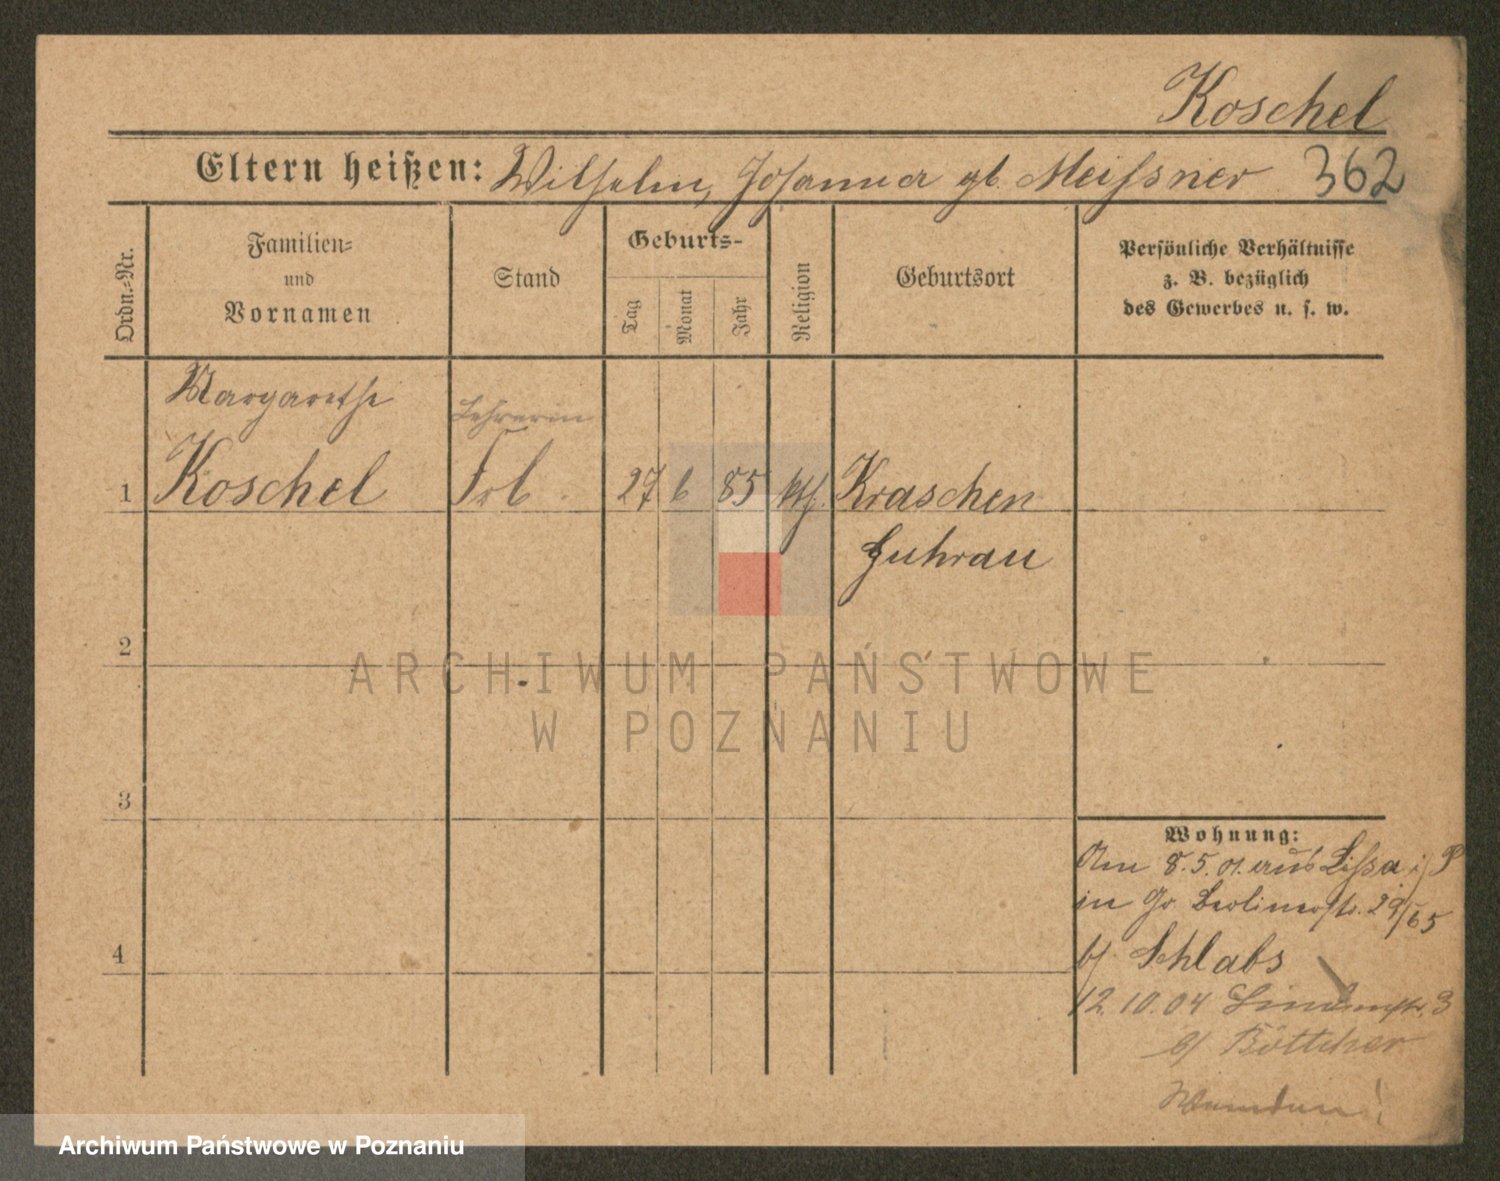 Koschel
Eltern heißen: Wilhelm, Johanna gb. Meissner 362
Ordn.-Nr.
Familien-
und
Vornamen
Stand
Geburts-
Tag
Monat
Jahr
Religion
Geburtsort
Persönliche Verhältnisse
z. B. bezüglich
des Gewerbes u. s. w.
Margarethe
Lehrerin
1 Koschel Frl 27 6 85 kth. Kraschen
Guhrau
2
ARCHIWUM PAŃSTWOWE
W POZNANIU
3
Wohnung:
Am 8.5.01. aus Lissa i/P
in Gr. Berlinerstr. 29/65
4
b/ Schlabs
12.10.04 Lindenstr. 3
b/ Böttcher
Wenden!
Archiwum Państwowe w Poznaniu